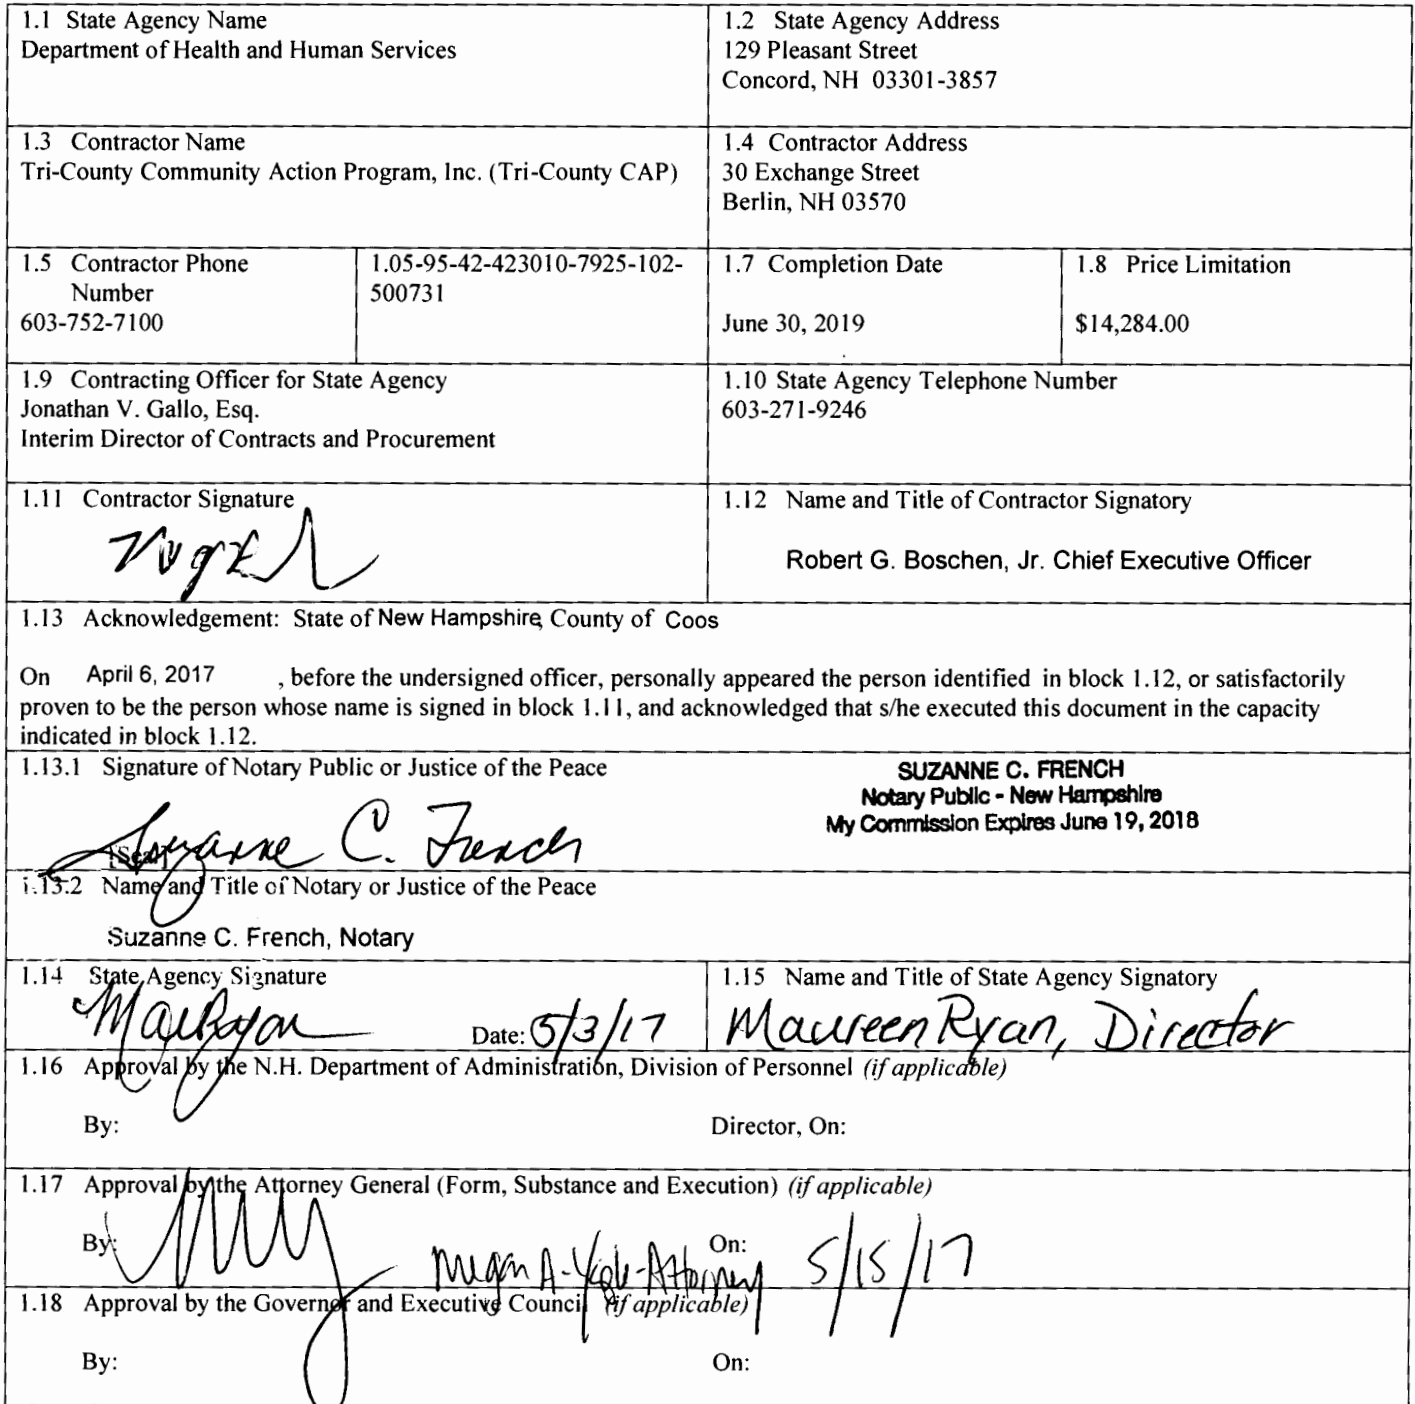 1.1 State Agency Name
Department of Health and Human Services
1.2 State Agency Address
129 Pleasant Street
Concord, NH 03301-3857
1.3 Contractor Name
Tri-County Community Action Program, Inc. (Tri-County CAP)
1.4 Contractor Address
30 Exchange Street
Berlin, NH 03570
1.5 Contractor Phone
Number
603-752-7100
1.05-95-42-423010-7925-102-
500731
1.7 Completion Date
June 30, 2019
1.8 Price Limitation
$14,284.00
1.9 Contracting Officer for State Agency
Jonathan V. Gallo, Esq.
Interim Director of Contracts and Procurement
1.10 State Agency Telephone Number
603-271-9246
1.11 Contractor Signature
1.12 Name and Title of Contractor Signatory
Robert G. Boschen, Jr. Chief Executive Officer
1.13 Acknowledgement: State of New Hampshire, County of Coos
On April 6, 2017 , before the undersigned officer, personally appeared the person identified in block 1.12, or satisfactorily
proven to be the person whose name is signed in block 1.11, and acknowledged that s/he executed this document in the capacity
indicated in block 1.12.
1.13.1 Signature of Notary Public or Justice of the Peace
SUZANNE C. FRENCH
Notary Public - New Hampshire
My Commission Expires June 19, 2018
Suzanne C. French
[Seal]
1.13.2 Name and Title of Notary or Justice of the Peace
Suzanne C. French, Notary
1.14 State Agency Signature
Date: 5/3/17
1.15 Name and Title of State Agency Signatory
Maureen Ryan, Director
1.16 Approval by the N.H. Department of Administration, Division of Personnel (if applicable)
By: Director, On:
1.17 Approval by the Attorney General (Form, Substance and Execution) (if applicable)
By: Megan A. - Attorney On: 5/15/17
1.18 Approval by the Governor and Executive Council (if applicable)
By: On: